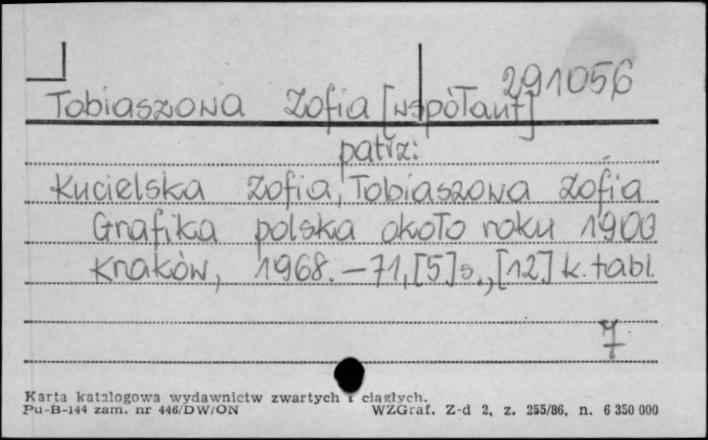 291056
Tobiaszowa Zofia [współaut]
patrz:
Kucielska Zofia, Tobiaszowa Zofia
Grafika polska około roku 1900
Kraków, 1968. – 71, [5] s., [12] k. tabl.
7
Karta katalogowa wydawnictw zwartych i ciągłych.
Pu-B-144 zam. nr 446/DW/ON WZGraf. Z-d 2, z. 255/86, n. 6 350 000